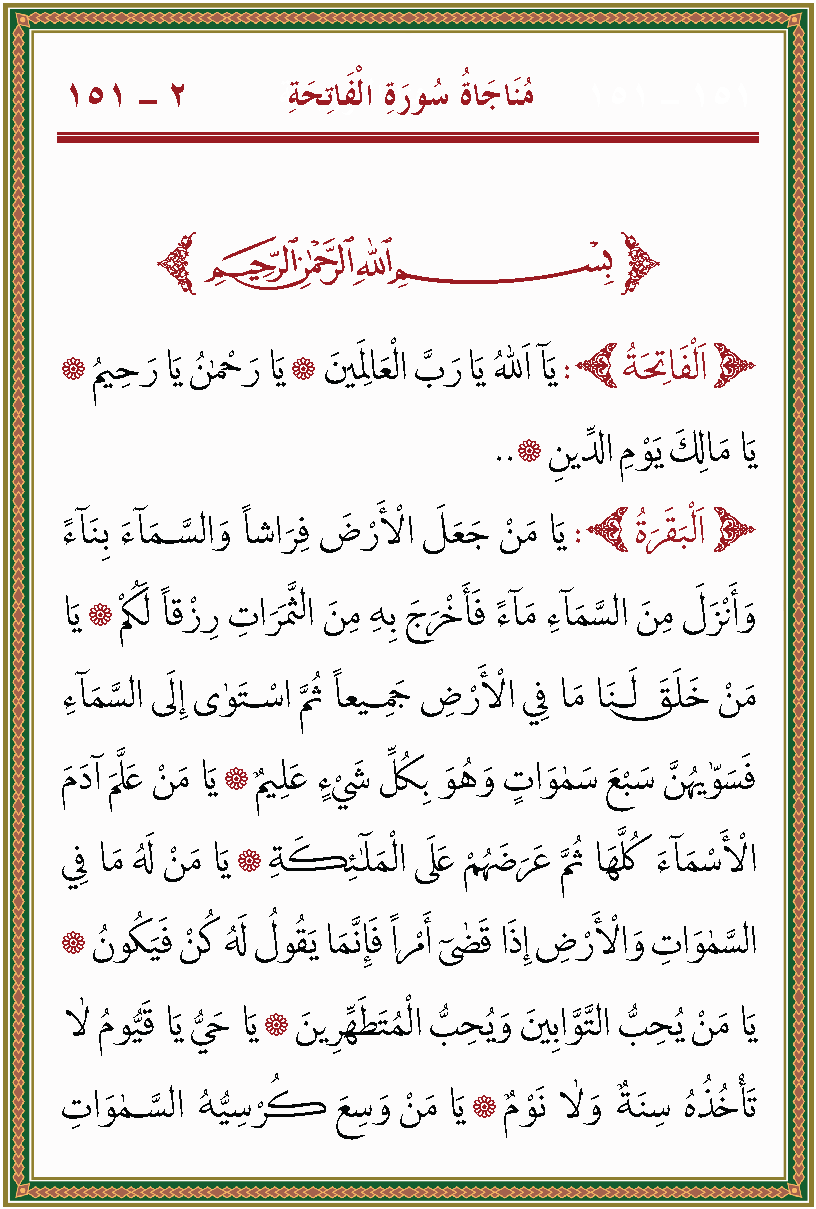 مُنَاجَاةُ سُورَةِ الْفَاتِحَةِ ٢ – ١٥١
بِسْمِ ٱللهِ ٱلرَّحْمٰنِ ٱلرَّحِيمِ
﴿ اَلْفَاتِحَةُ ﴾: يَآ اَللهُ يَا رَبَّ الْعَالَمِينَ ۞ يَا رَحْمٰنُ يَا رَحِيمُ ۞
يَا مَالِكَ يَوْمِ الدِّينِ ۞..
﴿ اَلْبَقَرَةُ ﴾: يَا مَنْ جَعَلَ الْأَرْضَ فِرَاشاً وَالسَّمَآءَ بِنَآءً
وَأَنْزَلَ مِنَ السَّمَآءِ مَآءً فَأَخْرَجَ بِهِ مِنَ الثَّمَرَاتِ رِزْقاً لَكُمْ ۞ يَا
مَنْ خَلَقَ لَنَا مَا فِي الْأَرْضِ جَمِيعاً ثُمَّ اسْتَوٰى إِلَى السَّمَآءِ
فَسَوّٰيهُنَّ سَبْعَ سَمٰوَاتٍ وَهُوَ بِكُلِّ شَيْءٍ عَلِيمٌ ۞ يَا مَنْ عَلَّمَ آدَمَ
الْأَسْمَآءَ كُلَّهَا ثُمَّ عَرَضَهُمْ عَلَى الْمَلٰٓئِكَةِ ۞ يَا مَنْ لَهُ مَا فِي
السَّمٰوَاتِ وَالْأَرْضِ إِذَا قَضٰىٓ أَمْراً فَإِنَّمَا يَقُولُ لَهُ كُنْ فَيَكُونُ ۞
يَا مَنْ يُحِبُّ التَّوَّابِينَ وَيُحِبُّ الْمُتَطَهِّرِينَ ۞ يَا حَيُّ يَا قَيُّومُ لَا
تَأْخُذُهُ سِنَةٌ وَلَا نَوْمٌ ۞ يَا مَنْ وَسِعَ كُرْسِيُّهُ السَّمٰوَاتِ